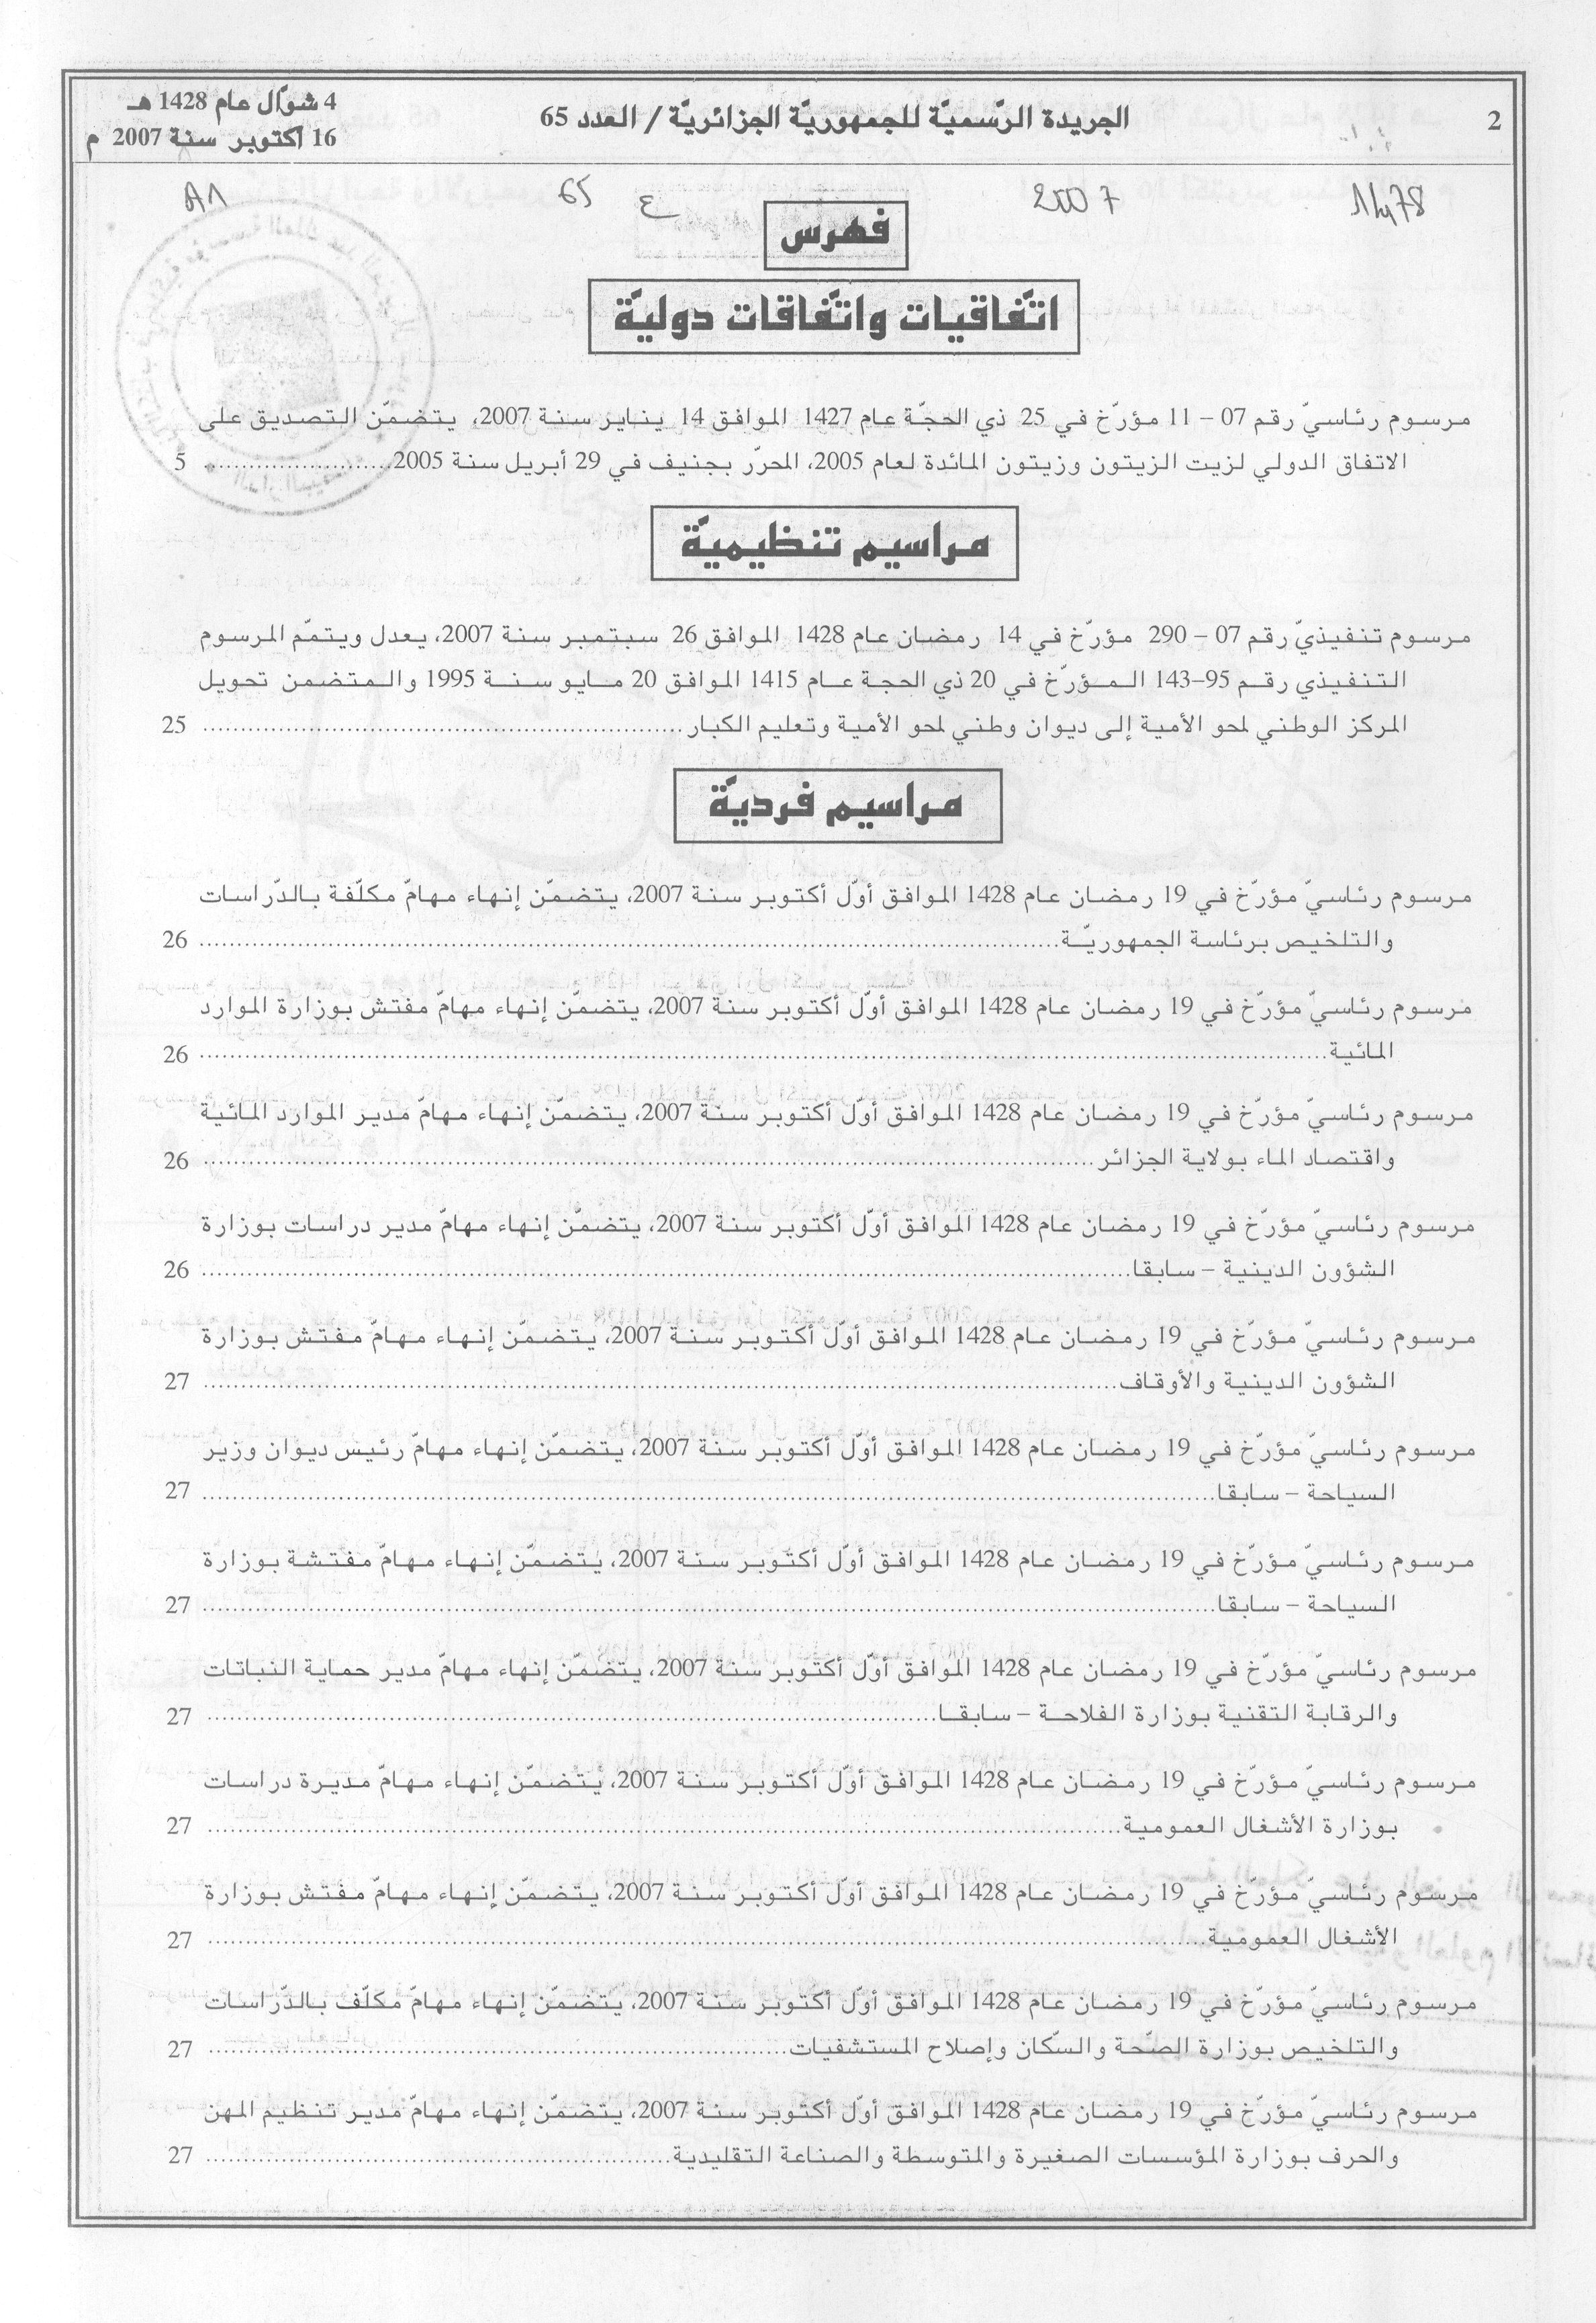 2
الجريدة الرّسميّة للجمهوريّة الجزائريّة / العدد 65
4 شوّال عام 1428 هـ
16 أكتوبر سنة 2007 م
2007
ع 65
فهرس
اتّفاقيات واتّفاقات دوليّة
مرسوم رئاسيّ رقم 07 – 11 مؤرّخ في 25 ذي الحجّة عام 1427 الموافق 14 يناير سنة 2007، يتضمّن التصديق على
الاتفاق الدولي لزيت الزيتون وزيتون المائدة لعام 2005، المحرّر بجنيف في 29 أبريل سنة 2005........................ 5
مراسيم تنظيميّة
مرسوم تنفيذيّ رقم 07 – 290 مؤرّخ في 14 رمضان عام 1428 الموافق 26 سبتمبر سنة 2007، يعدل ويتمّم المرسوم
التنفيذي رقم 95–143 المؤرّخ في 20 ذي الحجة عام 1415 الموافق 20 مايو سنة 1995 والمتضمن تحويل
المركز الوطني لمحو الأمية إلى ديوان وطني لمحو الأمية وتعليم الكبار........................ 25
مراسيم فرديّة
مرسوم رئاسيّ مؤرّخ في 19 رمضان عام 1428 الموافق أوّل أكتوبر سنة 2007، يتضمّن إنهاء مهامّ مكلّفة بالدّراسات
والتلخيص برئاسة الجمهوريّة........................ 26
مرسوم رئاسيّ مؤرّخ في 19 رمضان عام 1428 الموافق أوّل أكتوبر سنة 2007، يتضمّن إنهاء مهامّ مفتش بوزارة الموارد
المائية........................ 26
مرسوم رئاسيّ مؤرّخ في 19 رمضان عام 1428 الموافق أوّل أكتوبر سنة 2007، يتضمّن إنهاء مهامّ مدير الموارد المائية
واقتصاد الماء بولاية الجزائر........................ 26
مرسوم رئاسيّ مؤرّخ في 19 رمضان عام 1428 الموافق أوّل أكتوبر سنة 2007، يتضمّن إنهاء مهامّ مدير دراسات بوزارة
الشؤون الدينية – سابقا........................ 26
مرسوم رئاسيّ مؤرّخ في 19 رمضان عام 1428 الموافق أوّل أكتوبر سنة 2007، يتضمّن إنهاء مهامّ مفتش بوزارة
الشؤون الدينية والأوقاف........................ 27
مرسوم رئاسيّ مؤرّخ في 19 رمضان عام 1428 الموافق أوّل أكتوبر سنة 2007، يتضمّن إنهاء مهامّ رئيس ديوان وزير
السياحة – سابقا........................ 27
مرسوم رئاسيّ مؤرّخ في 19 رمضان عام 1428 الموافق أوّل أكتوبر سنة 2007، يتضمّن إنهاء مهامّ مفتشة بوزارة
السياحة – سابقا........................ 27
مرسوم رئاسيّ مؤرّخ في 19 رمضان عام 1428 الموافق أوّل أكتوبر سنة 2007، يتضمّن إنهاء مهامّ مدير حماية النباتات
والرقابة التقنية بوزارة الفلاحة – سابقا........................ 27
مرسوم رئاسيّ مؤرّخ في 19 رمضان عام 1428 الموافق أوّل أكتوبر سنة 2007، يتضمّن إنهاء مهامّ مديرة دراسات
بوزارة الأشغال العمومية........................ 27
مرسوم رئاسيّ مؤرّخ في 19 رمضان عام 1428 الموافق أوّل أكتوبر سنة 2007، يتضمّن إنهاء مهامّ مفتش بوزارة
الأشغال العمومية........................ 27
مرسوم رئاسيّ مؤرّخ في 19 رمضان عام 1428 الموافق أوّل أكتوبر سنة 2007، يتضمّن إنهاء مهامّ مكلّف بالدّراسات
والتلخيص بوزارة الصّحة والسّكان وإصلاح المستشفيات........................ 27
مرسوم رئاسيّ مؤرّخ في 19 رمضان عام 1428 الموافق أوّل أكتوبر سنة 2007، يتضمّن إنهاء مهامّ مدير تنظيم المهن
والحرف بوزارة المؤسسات الصغيرة والمتوسطة والصناعة التقليدية........................ 27